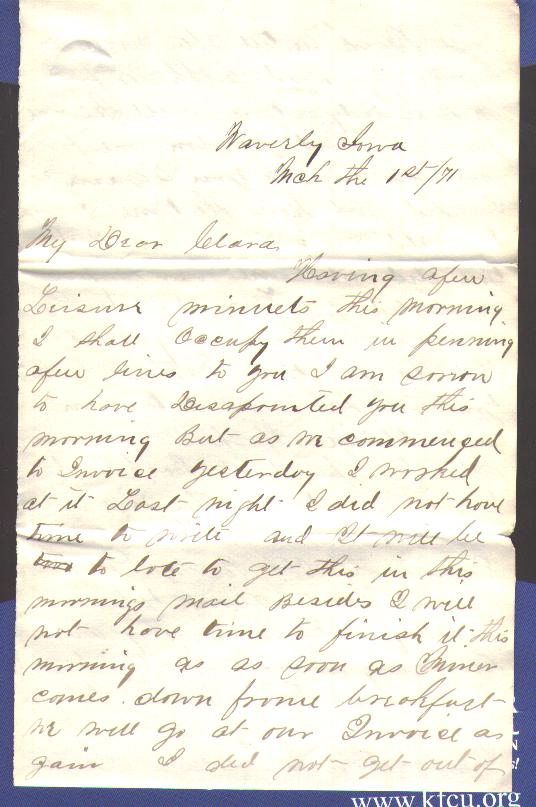 Waverly Iowa
Mch the 1st/71
My Dear Clara
Having afew
Leisure minuets this morning
I shall Occupy them in penning
afew lines to you I am sorrow
to have Disapointed you this
morning But as we commenced
to Invoice yesterday I worked
at it Last night I did not have
time to write and It will be
to late to get this in this
mornings mail Besides I will
not have time to finish it this
morning as as soon as Miner
comes down frome breakfast
we will go at our Invoice as
gain I did not get out of
www.ktcu.org